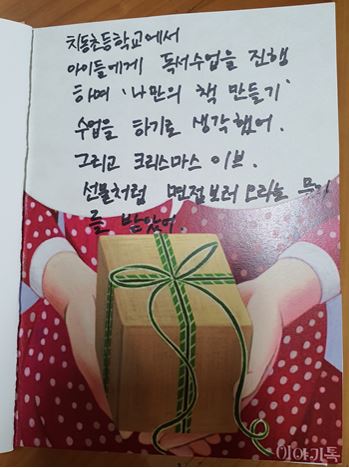 지동초등학교에서
아이들에게 독서수업을 진행
하며 '나만의 책 만들기'
수업을 하기로 생각했어.
그리고 크리스마스 이브.
선물처럼 면접보러 오라는 문자
를 받았어.
이야기톡